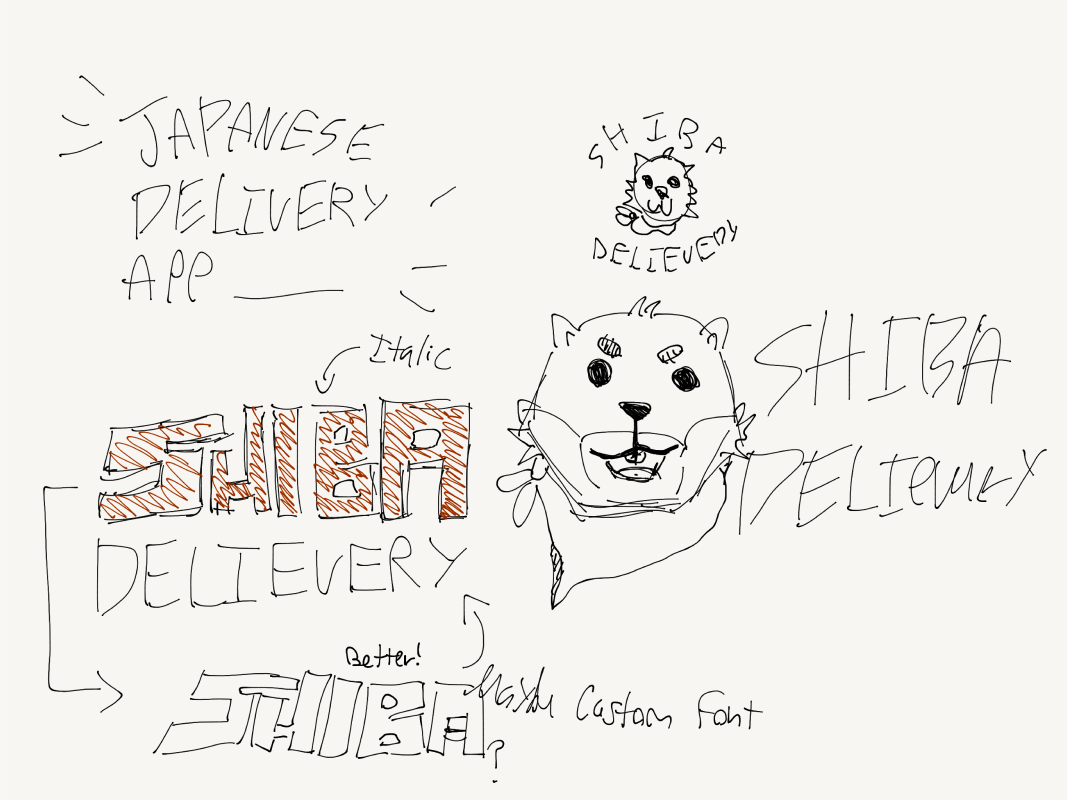 JAPANESE
DELIVERY
APP
SHIBA
DELIEVERY
Italic
SHIBA
DELIEVERY
SHIBA
Better!
SHIBA
Custom Font
?